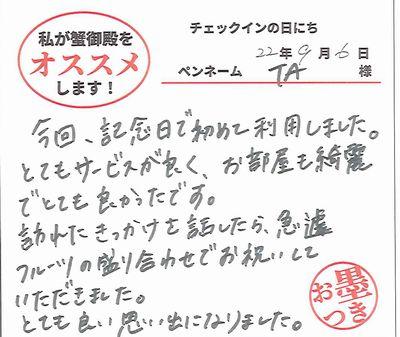 私が蟹御殿を
オススメ
します！
チェックインの日にち
22年9月6日
ペンネーム TA 様
今回、記念日で初めて利用しました。
とてもサービスが良く、お部屋も綺麗
でとても良かったです。
訪れたきっかけを話したら、急遽
フルーツの盛り合わせでお祝いして
いただきました。
とても良い思い出になりました。
お墨つき